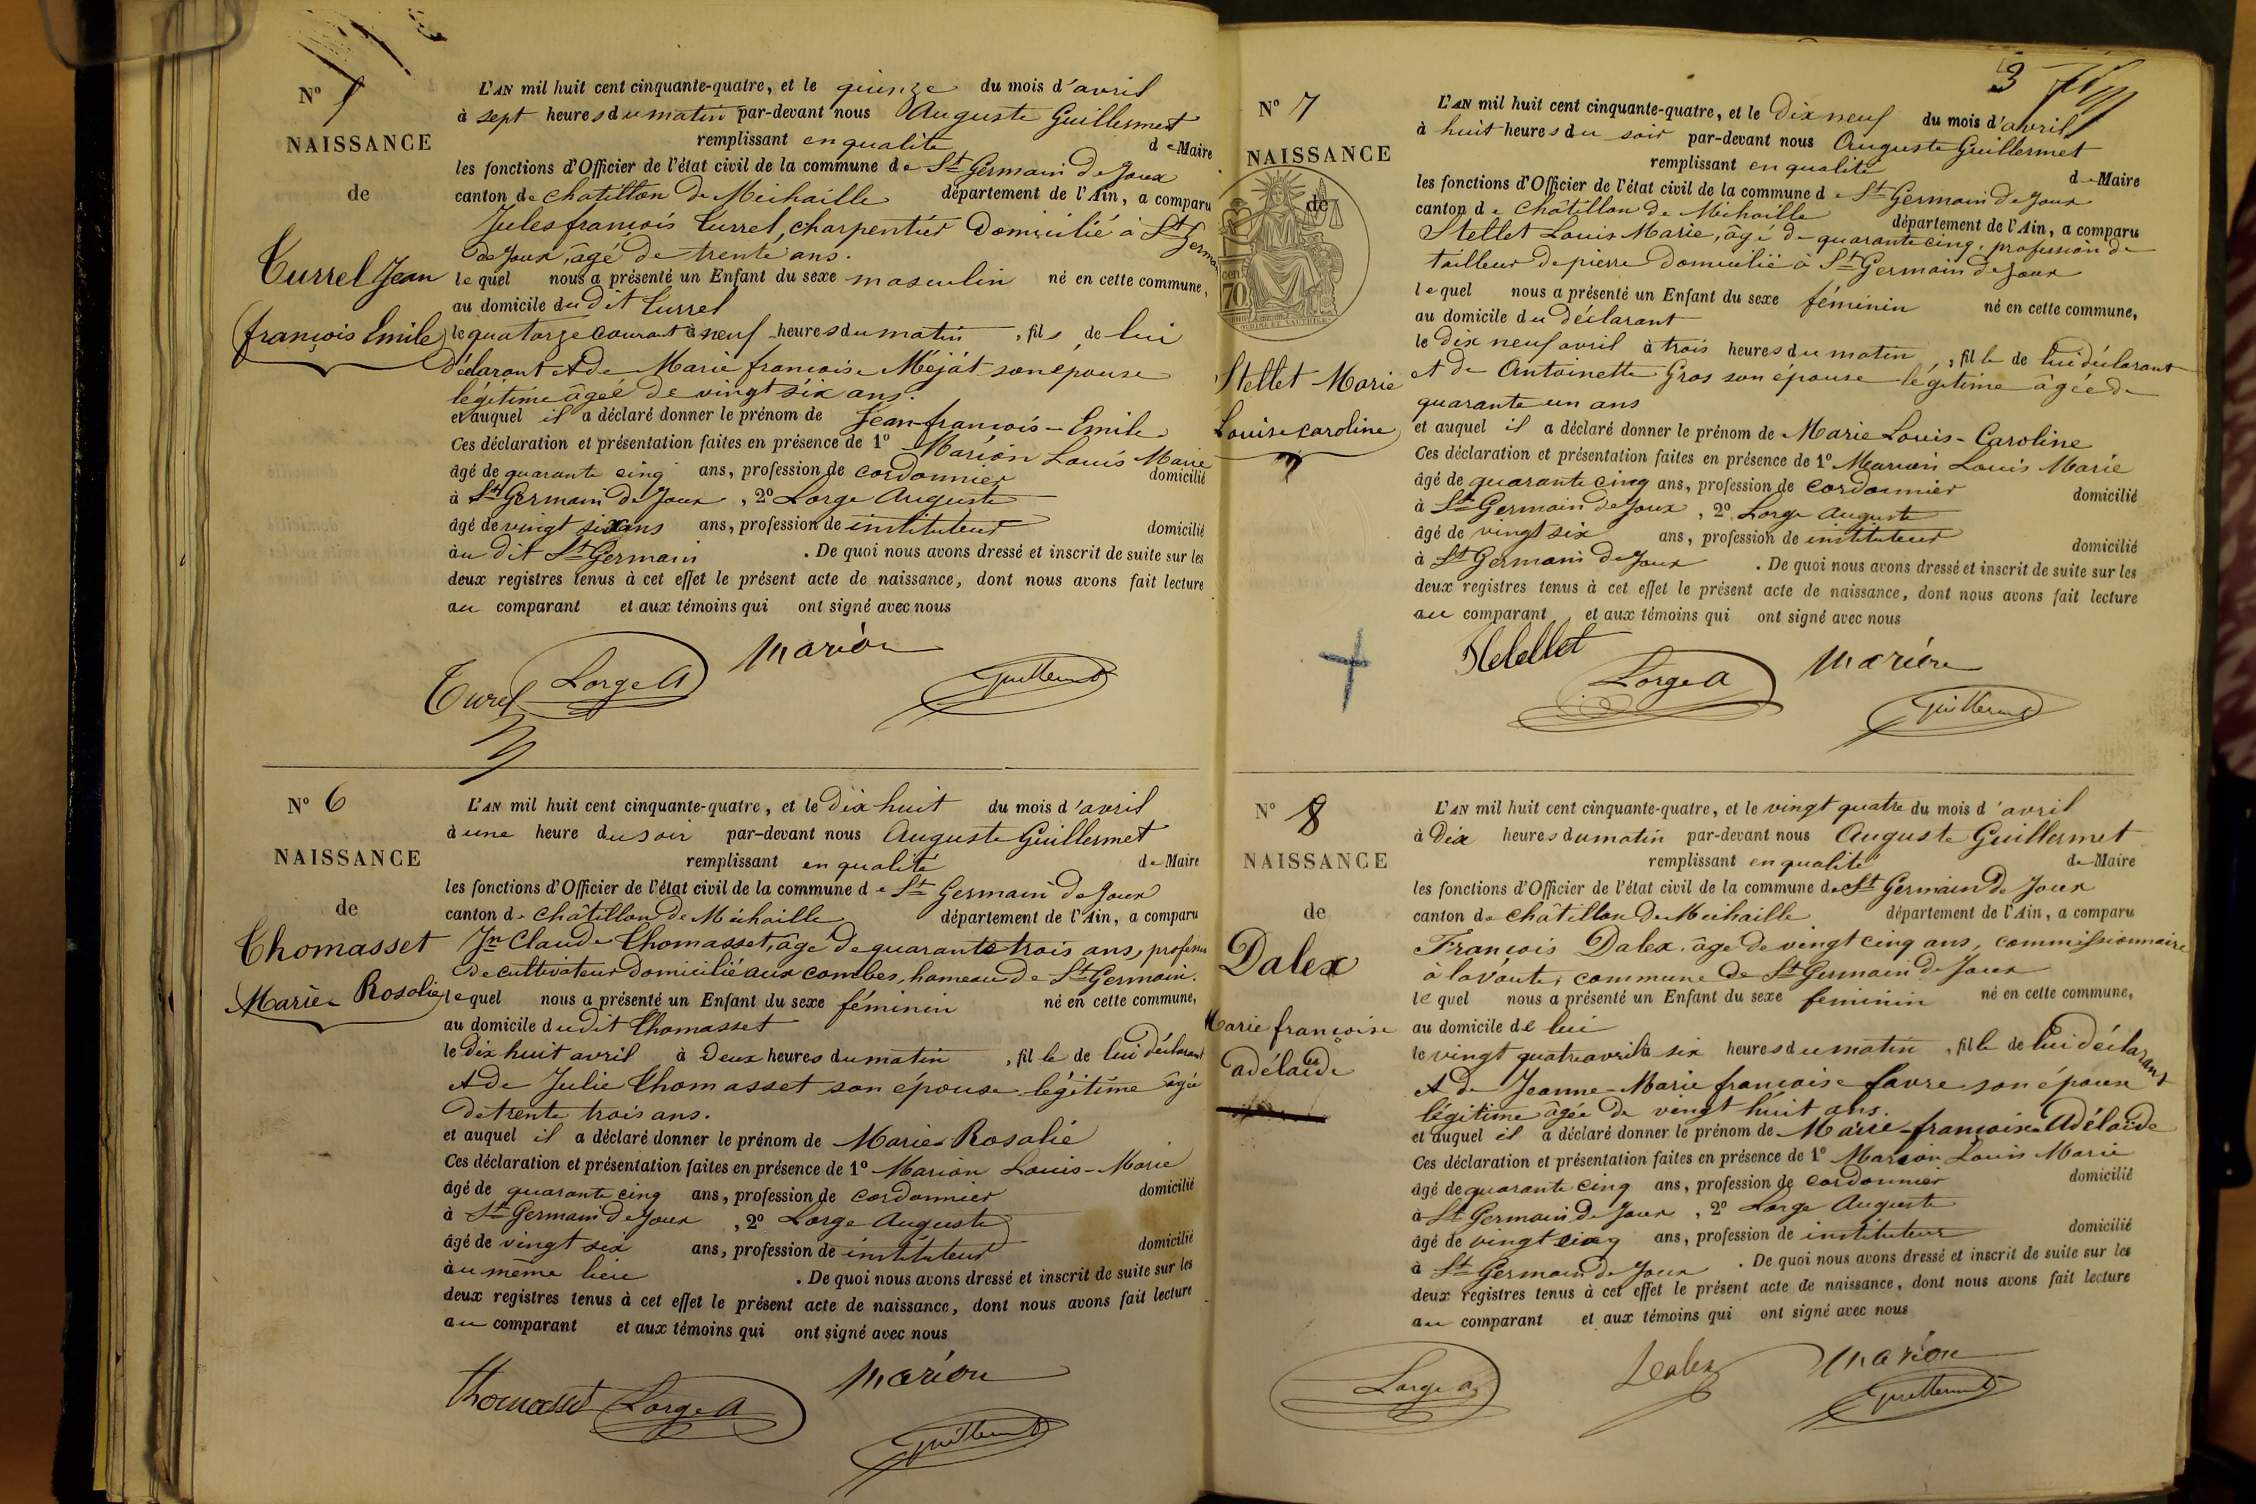 N° 5
NAISSANCE
de
Turrel Jean
françois Emile
L'AN mil huit cent cinquante-quatre, et le quinze du mois d'avril
à sept heures du matin par-devant nous Auguste Guillermet
remplissant en qualité de Maire
les fonctions d'Officier de l'état civil de la commune de St Germain de Joux
canton de Chatillon de Michaille département de l'Ain, a comparu
Jules françois Turrel, charpentier domicilié à St Germain
de Joux, âgé de trente ans.
lequel nous a présenté un Enfant du sexe masculin né en cette commune,
au domicile du dit Turrel
le quatorze courant à neuf heures du matin, fils de lui
déclarant et de Marie françoise Méjat son épouse
légitime âgée de vingt six ans.
et auquel il a déclaré donner le prénom de Jean-françois-Emile
Ces déclaration et présentation faites en présence de 1° Marion Louis Marie
âgé de quarante cinq ans, profession de cordonnier domicilié
à St Germain de Joux, 2° Lorge Auguste
âgé de vingt six ans ans, profession de instituteur domicilié
au dit St Germain. De quoi nous avons dressé et inscrit de suite sur les
deux registres tenus à cet effet le présent acte de naissance, dont nous avons fait lecture
au comparant et aux témoins qui ont signé avec nous
Turel Lorge A Marion Guillermet
N° 6
NAISSANCE
de
Thomasset
Marie Rosalie
L'AN mil huit cent cinquante-quatre, et le dix huit du mois d'avril
à une heure du soir par-devant nous Auguste Guillermet
remplissant en qualité de Maire
les fonctions d'Officier de l'état civil de la commune de St Germain de Joux
canton de Châtillon de Michaille département de l'Ain, a comparu
Jn Claude Thomasset, âgé de quarante trois ans, profession
de cultivateur domicilié aux combes, hameau de St Germain.
lequel nous a présenté un Enfant du sexe féminin né en cette commune,
au domicile du dit Thomasset
le dix huit avril à deux heures du matin, fille de lui déclarant
et de Julie Thomasset son épouse légitime âgée
de trente trois ans.
et auquel il a déclaré donner le prénom de Marie Rosalie
Ces déclaration et présentation faites en présence de 1° Marion Louis-Marie
âgé de quarante cinq ans, profession de cordonnier domicilié
à St Germain de Joux, 2° Lorge Auguste
âgé de vingt six ans, profession de instituteur domicilié
au même lieu. De quoi nous avons dressé et inscrit de suite sur les
deux registres tenus à cet effet le présent acte de naissance, dont nous avons fait lecture
au comparant et aux témoins qui ont signé avec nous
Thomasset Lorge A Marion Guillermet
3
N° 7
NAISSANCE
de
70
Stellet Marie
Louise caroline
L'AN mil huit cent cinquante-quatre, et le Dix neuf du mois d'avril
à huit heures du soir par-devant nous Auguste Guillermet
remplissant en qualité de Maire
les fonctions d'Officier de l'état civil de la commune de St Germain de Joux
canton de Châtillon de Michaille département de l'Ain, a comparu
Stellet Louis Marie, âgé de quarante cinq, profession de
tailleur de pierre domicilié à St Germain de Joux
lequel nous a présenté un Enfant du sexe féminin né en cette commune,
au domicile du déclarant
le dix neuf avril à trois heures du matin, fille de lui déclarant
et de Antoinette Gros son épouse légitime âgée de
quarante un ans
et auquel il a déclaré donner le prénom de Marie Louis-Caroline
Ces déclaration et présentation faites en présence de 1° Marion Louis Marie
âgé de quarante cinq ans, profession de cordonnier domicilié
à St Germain de Joux, 2° Lorge Auguste
âgé de vingt six ans, profession de instituteur domicilié
à St Germain de Joux. De quoi nous avons dressé et inscrit de suite sur les
deux registres tenus à cet effet le présent acte de naissance, dont nous avons fait lecture
au comparant et aux témoins qui ont signé avec nous
Lorge A Marion Guillermet
N° 8
NAISSANCE
de
Dalex
Marie françoise
adélaïde
L'AN mil huit cent cinquante-quatre, et le vingt quatre du mois d'avril
à Dix heures du matin par-devant nous Auguste Guillermet
remplissant en qualité de Maire
les fonctions d'Officier de l'état civil de la commune de St Germain de Joux
canton de Châtillon de Michaille département de l'Ain, a comparu
François Dalex, âgé de vingt cinq ans, commissionnaire
à la voute, commune de St Germain de Joux
lequel nous a présenté un Enfant du sexe féminin né en cette commune,
au domicile de lui
le vingt quatre avril à six heures du matin, fille de lui déclarant
et de Jeanne-Marie françoise favre son épouse
légitime âgée de vingt huit ans.
et auquel il a déclaré donner le prénom de Marie-françoise Adélaïde
Ces déclaration et présentation faites en présence de 1° Marion Louis Marie
âgé de quarante cinq ans, profession de cordonnier domicilié
à St Germain de Joux, 2° Lorge Auguste
âgé de vingt ans, profession de instituteur domicilié
à St Germain de Joux. De quoi nous avons dressé et inscrit de suite sur les
deux registres tenus à cet effet le présent acte de naissance, dont nous avons fait lecture
au comparant et aux témoins qui ont signé avec nous
Lorge A Dalex Marion Guillermet